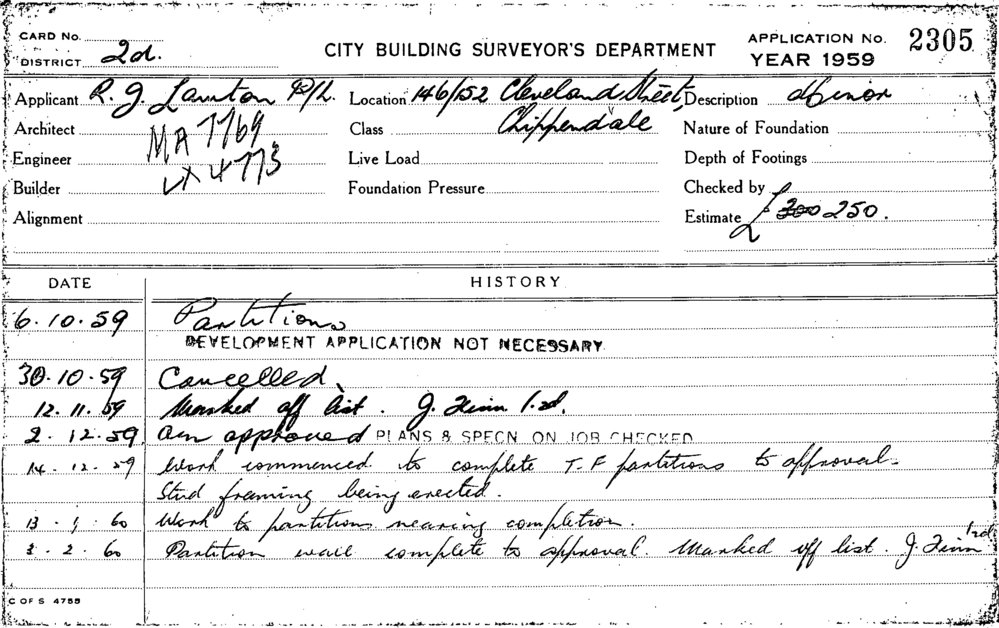 CARD No.
DISTRICT 2d.
CITY BUILDING SURVEYOR'S DEPARTMENT
APPLICATION No. 2305
YEAR 1959
Applicant R. J. Lawton P/L. Location 146/152 Cleveland Street, Description Minor
Architect MA 7769 Class Chippendale Nature of Foundation
Engineer LX 4773 Live Load Depth of Footings
Builder Foundation Pressure Checked by
Alignment Estimate £ 300 250.
DATE HISTORY
6.10.59 Partitions
DEVELOPMENT APPLICATION NOT NECESSARY
30.10.59 Cancelled
12.11.59 Marked off list. J. Finn 1.2d.
2.12.59 approved PLANS & SPECN ON JOB CHECKED
14.12.59 Work commenced to complete T.F partitions to approval.
Stud framing being erected.
13.1.60 Work to partitions nearing completion.
3.2.60 Partition complete to approval. Marked off list. J. Finn
C OF S 4755